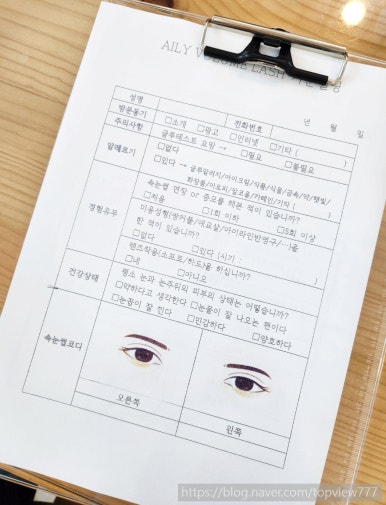 AILY VOLUME LASH
년 월 일
성명 전화번호
방문동기 □소개 □광고 □인터넷 □기타 ( )
주의사항 글루테스트 요망 → □필요 □불필요
알레르기 □없다
□있다 → 글루알러지/아이크림/식품/식물/금속/약/햇빛/
화장품/아토피/알코올/카페인/기타 ( )
경험유무 속눈썹 연장 or 증모를 해본 적이 있습니까?
□처음 □1회 이하 □5회 이상
미용성형(쌍꺼풀/애교살/아이라인반영구/…)을
한 적이 있습니까?
□없다 □있다 [시기 :
렌즈착용(소프트/하드)을 하십니까?
□네 □아니오
건강상태 평소 눈과 눈주위의 피부의 상태는 어떻습니까?
□약하다고 생각한다 □눈물이 잘 나오는 편이다
□눈곱이 잘 낀다 □민감하다 □양호하다
속눈썹코디
오른쪽 왼쪽
https://blog.naver.com/topview777